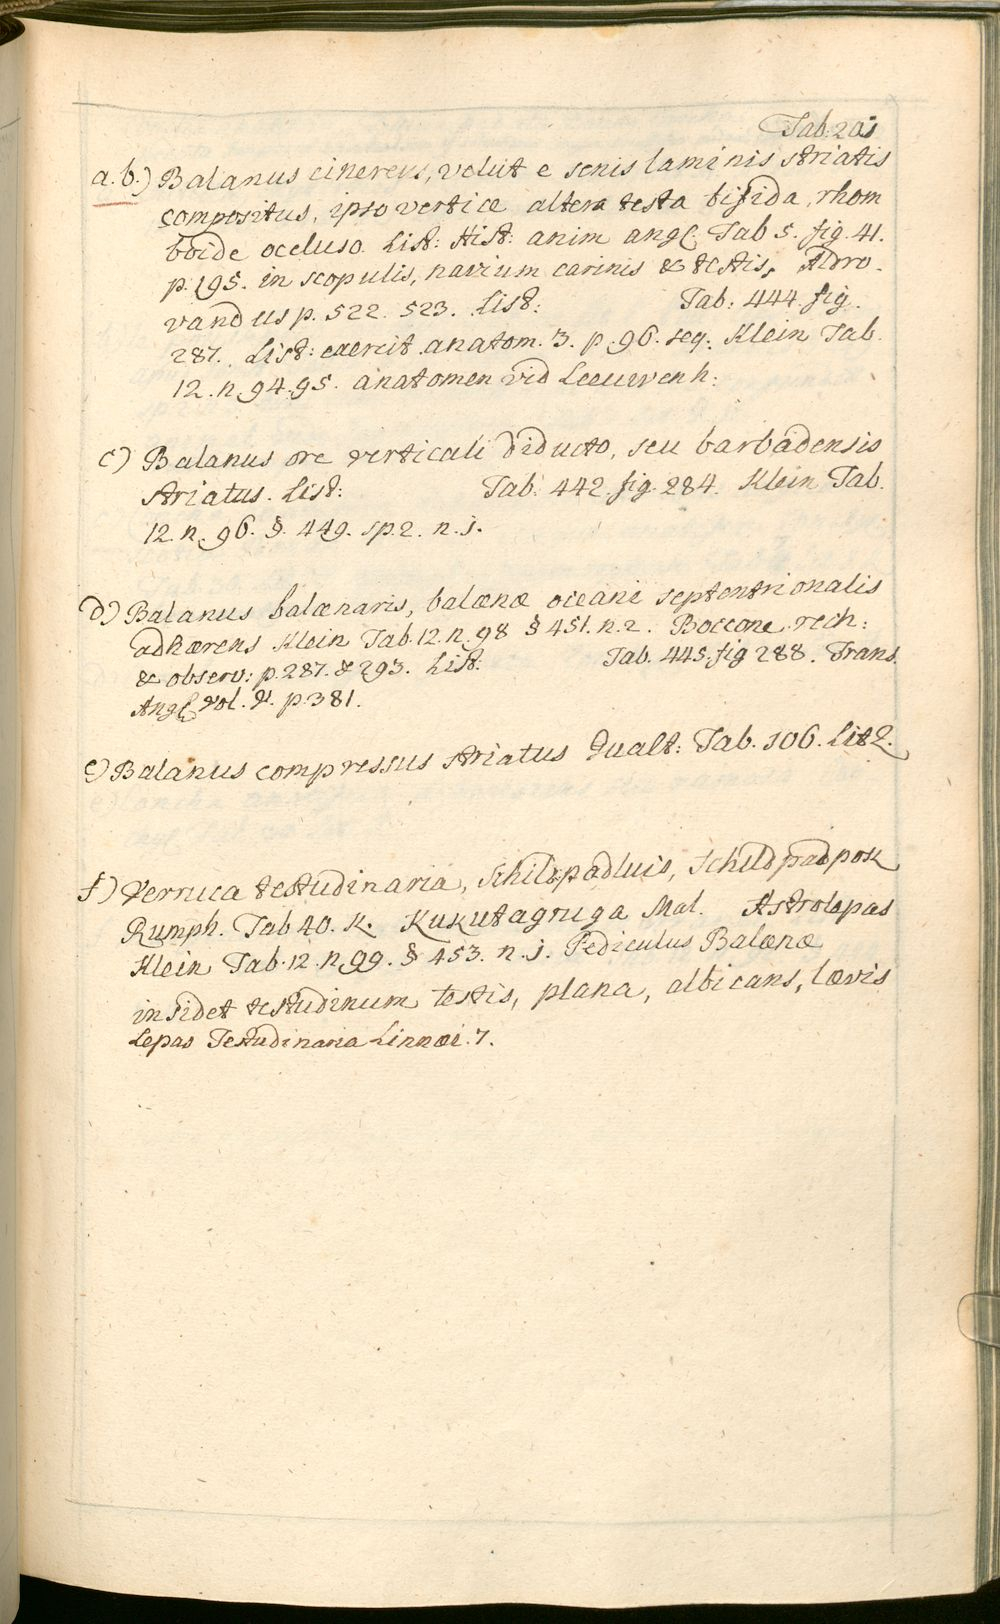 Tab: 201
a. b.) Balanus cinereus, velut e senis laminis striatis
compositus, ipso vertice altera testa bifida, rhom
boide occluso. List: Hist: anim angl. Tab 5. fig. 41.
p. 195. in scopulis, navium carinis & testis, Aldro.
vandus p. 522. 523. List: Tab: 444. fig.
287. List: exercit. anatom. 3. p. 96. seq. Klein Tab.
12. n. 94. 95. anatomen vid Leeuwenh:
c) Balanus ore verticali diducto, seu barbadensis
striatus. List: Tab: 442. fig. 284. Klein Tab.
12. n. 96. §. 449. sp. 2. n. j.
d) Balanus balænaris, balænæ oceani septentrionalis
adhærens Klein Tab. 12. n. 98 § 451. n. 2. Boccone. rech:
& observ: p. 287. & 293. List: Tab. 445. fig 288. Trans.
Angl vol. V. p. 381.
e) Balanus compressus striatus Gualt: Tab. 106. Lit 2.
f) Verruca testudinaria, Schildpadluis, Schildpadpok
Rumph. Tab 40. K. Kukutagruga Mal. Astrolepas
Klein Tab. 12. n. 99. § 453. n. j. Pediculus Balænæ
insidet testudinum testis, plana, albicans, lævis
Lepas Testudinaria Linnæi. 7.